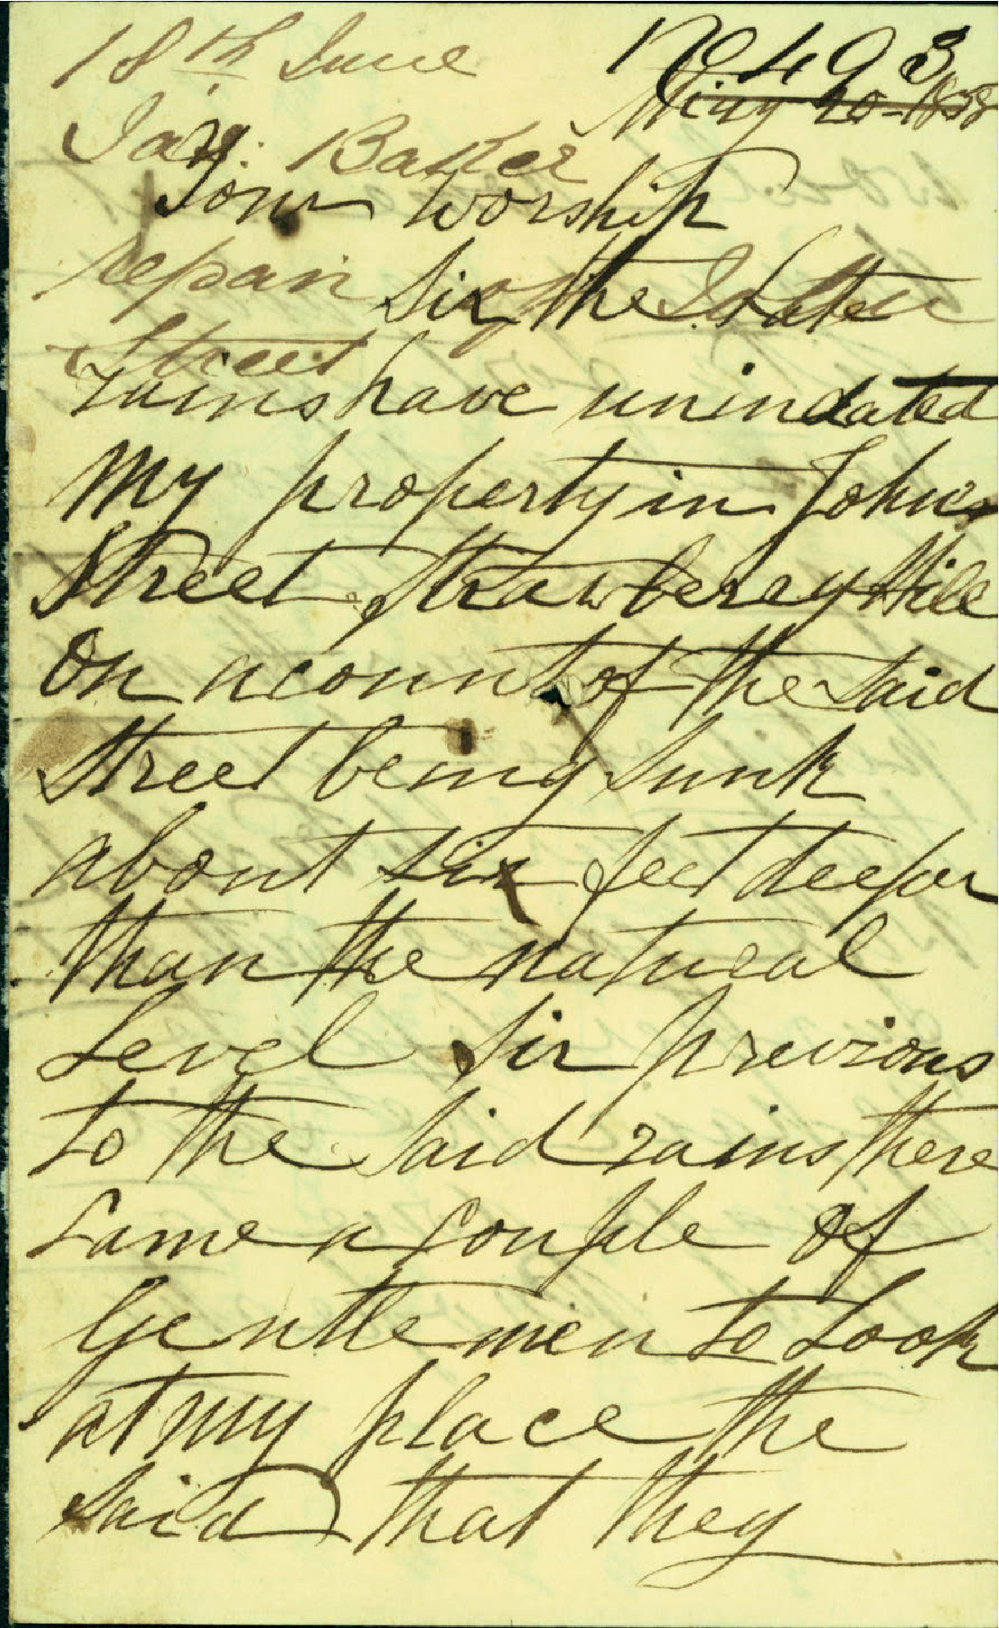 18th June No 493
May 20 - 1858
Jas. Baker
Your Worship
repair Sir the Latter
Street
rains have unindated
My property in Johns
Street Strawberey Hill
on acount of the said
street being sunk
about six feet deeper
than the natural
Level Sir previous
to the said rains there
Came a Couple of
Gentlemen to Look
at my place the
said that they